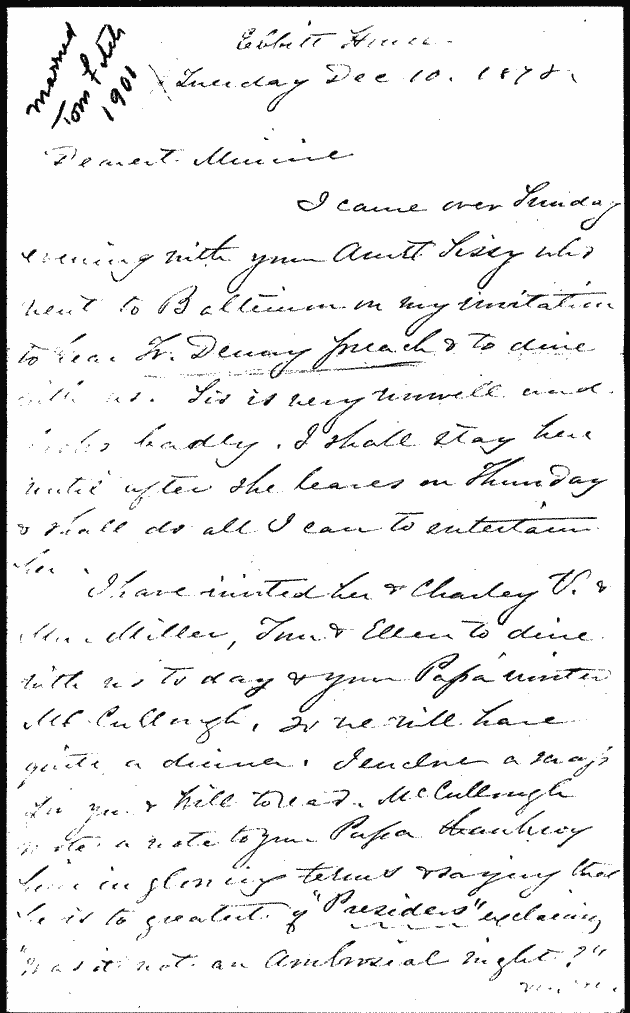 Married
Tom Fitch
1901
Ebbitt House
Tuesday Dec 10. 1878.
Dearest Minnie
I came over Sunday
evening with your Aunt Sissy who
went to Baltimore on my invitation
to hear Fr. Denny preach & to dine
with us. Sis is very unwell and
looks badly. I shall stay here
until after she leaves on Thursday
& shall do all I can to entertain
her.
I have invited her & Charley V. &
Mr. Miller, Tom & Ellen to dine
with us to day & your Papa invited
McCullough, so we will have
quite a dinner. I enclose a scrap
for you & Will to read. McCullough
wrote a note to your Papa thanking
him in glowing terms & saying that
he is to greatest of "Presiders" exclaiming
"was it not an Ambrosial night?"